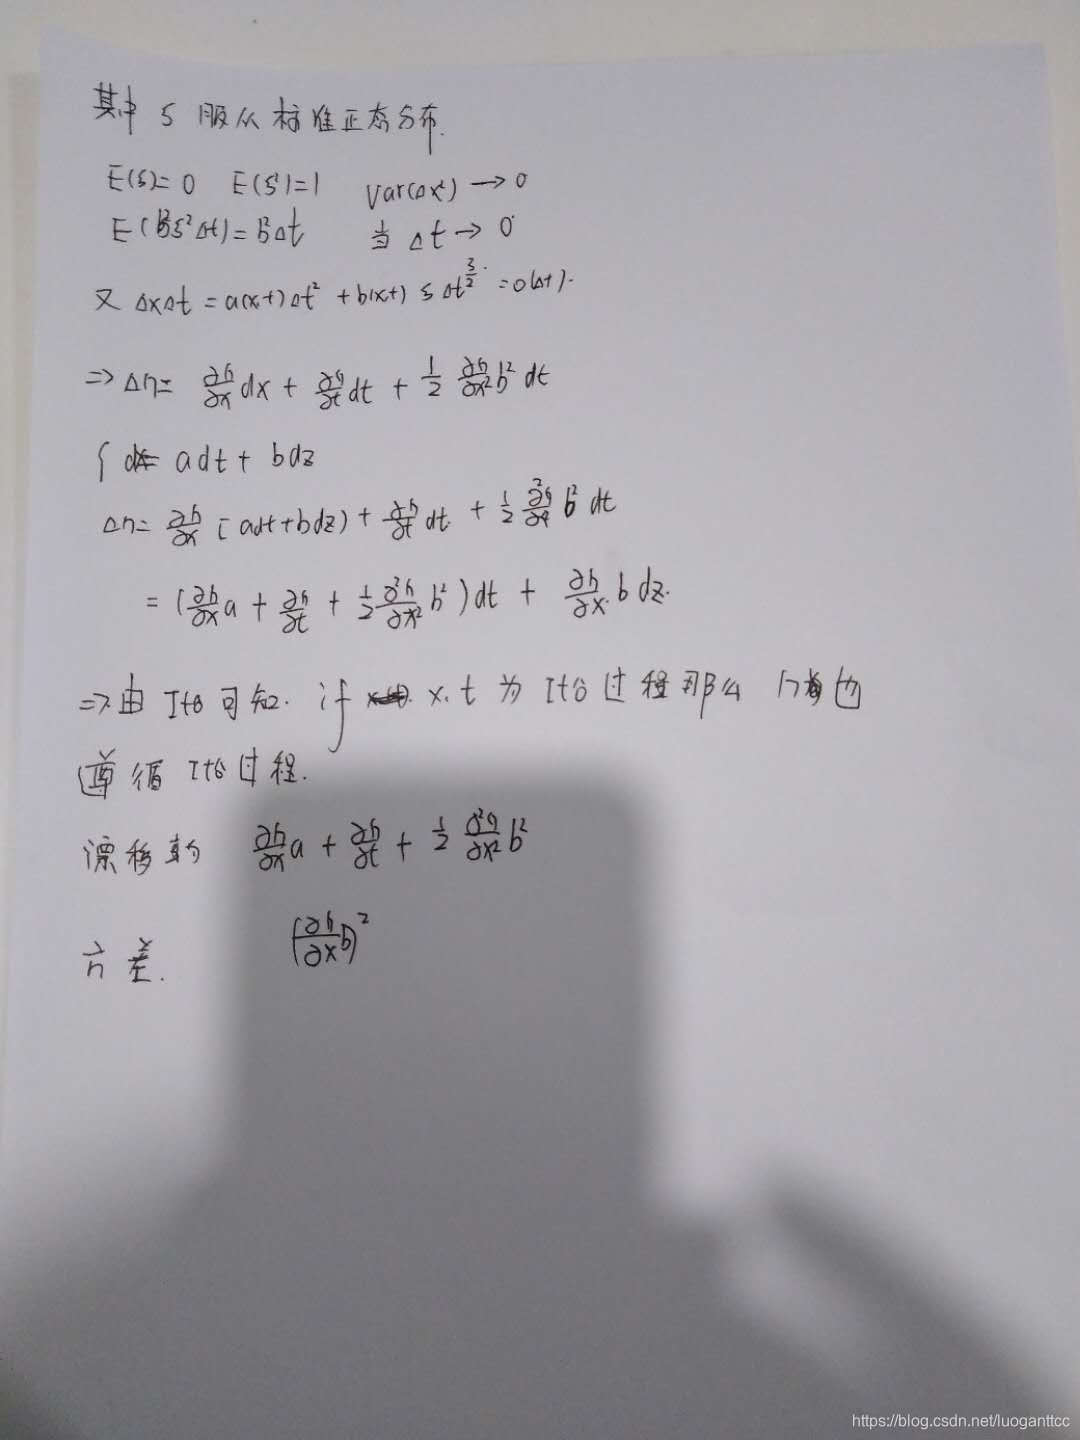 其中 S 服从标准正态分布.
E(S)=0 E(S²)=1 Var(Δx²)→0
E(b²S²Δt)=b²Δt 当 Δt→0
又 ΔxΔt = a(x,t)Δt² + b(x,t) S Δt^{3/2} = o(Δt).
⇒ Δh = ∂h/∂x dx + ∂h/∂t dt + 1/2 ∂h/∂x² b² dt
∫ dx = adt + bdz
Δh = ∂h/∂x (adt+bdz) + ∂h/∂t dt + 1/2 b² dt
= (∂h/∂x a + ∂h/∂t + 1/2 ∂²h/∂x² b²)dt + ∂h/∂x b dz.
⇒由 Itô 可知. if x.t 为 Itô 过程那么 h 也
遵循 Itô 过程.
漂移率为 ∂h/∂x a + ∂h/∂t + 1/2 ∂²h/∂x² b²
方差. (∂h/∂x b)²
https://blog.csdn.net/luoganttcc